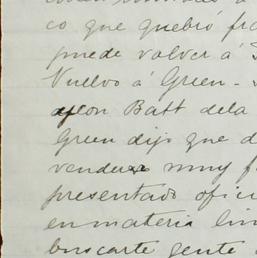 co que quebró fra
puede volver á
Vuelvo á Green-
con Batt dela
Green dijo que d
vender muy f
presentado ofici
en materia lim
buscarte gente